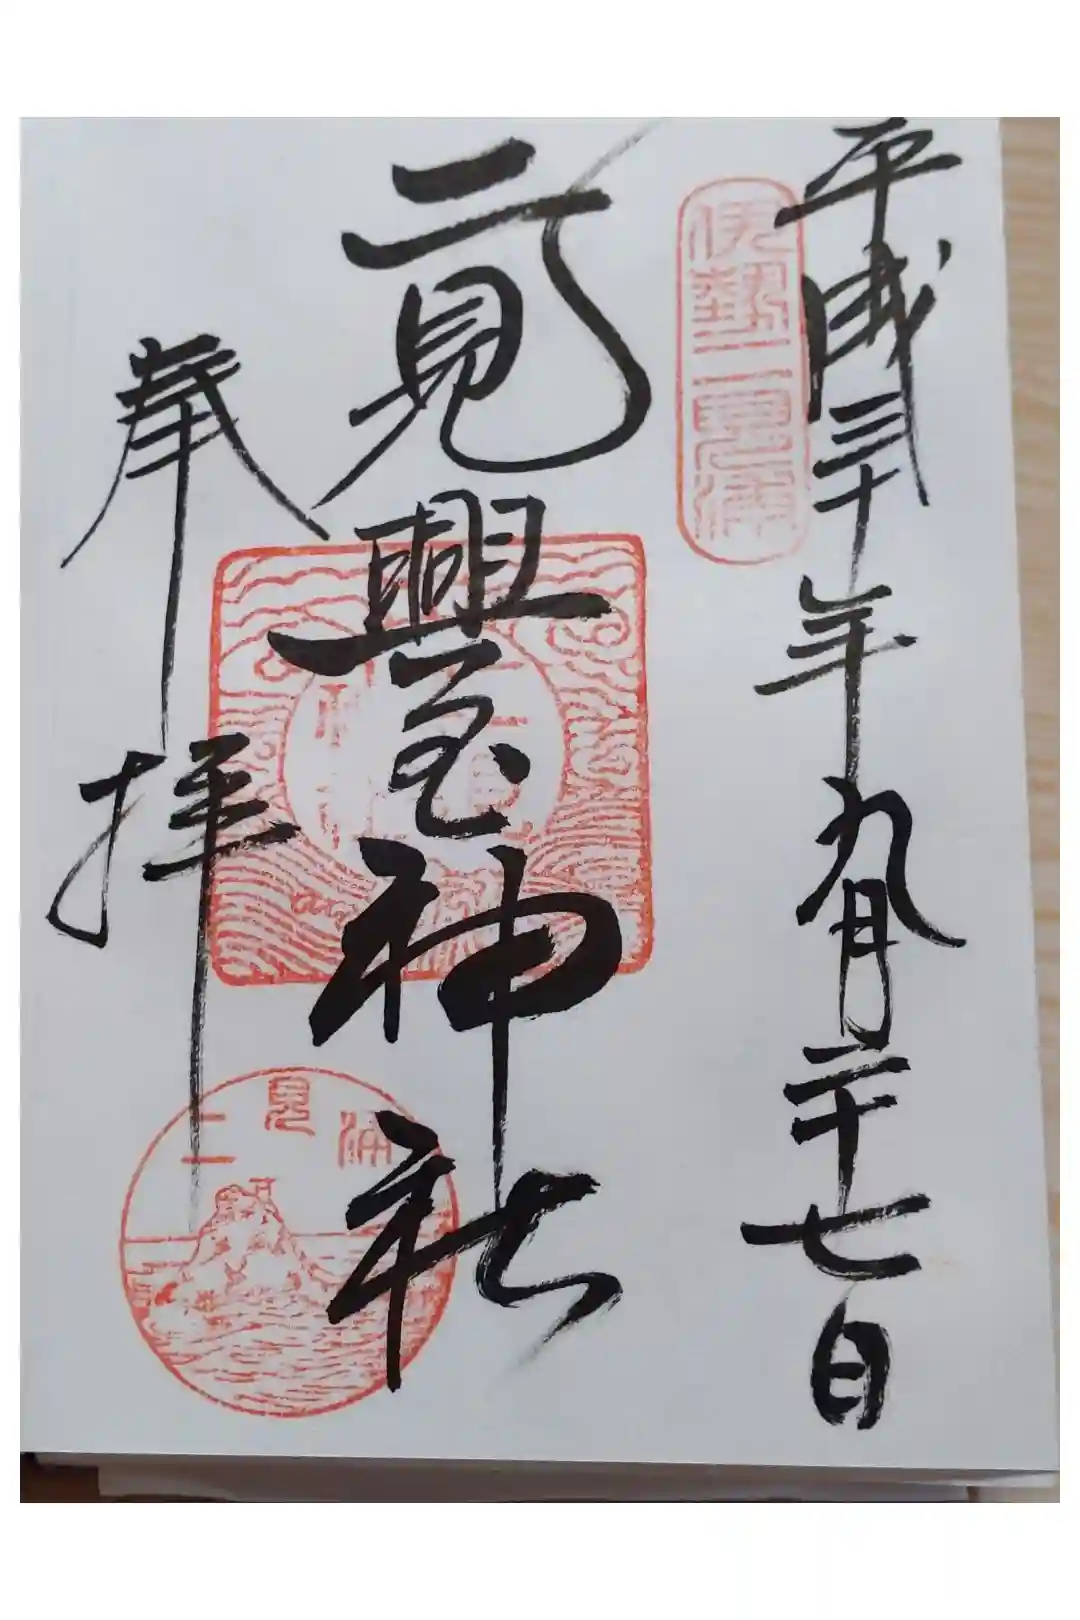 平成三十年九月二十七日
伊勢二見浦
二見興玉神社
奉拝
二見浦